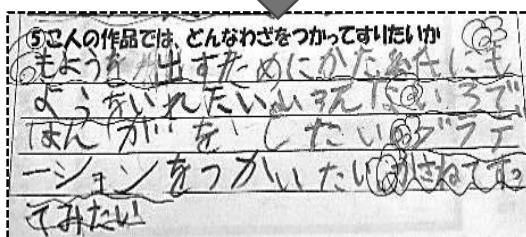 ⑤二人の作品では、どんなわざをつかってすりたいか
もようを出すためにかた紙にも
ようをいれたい いろんないろで、
はんがをしたい グラデ
ーションをつかいたい かさねてすっ
てみたい